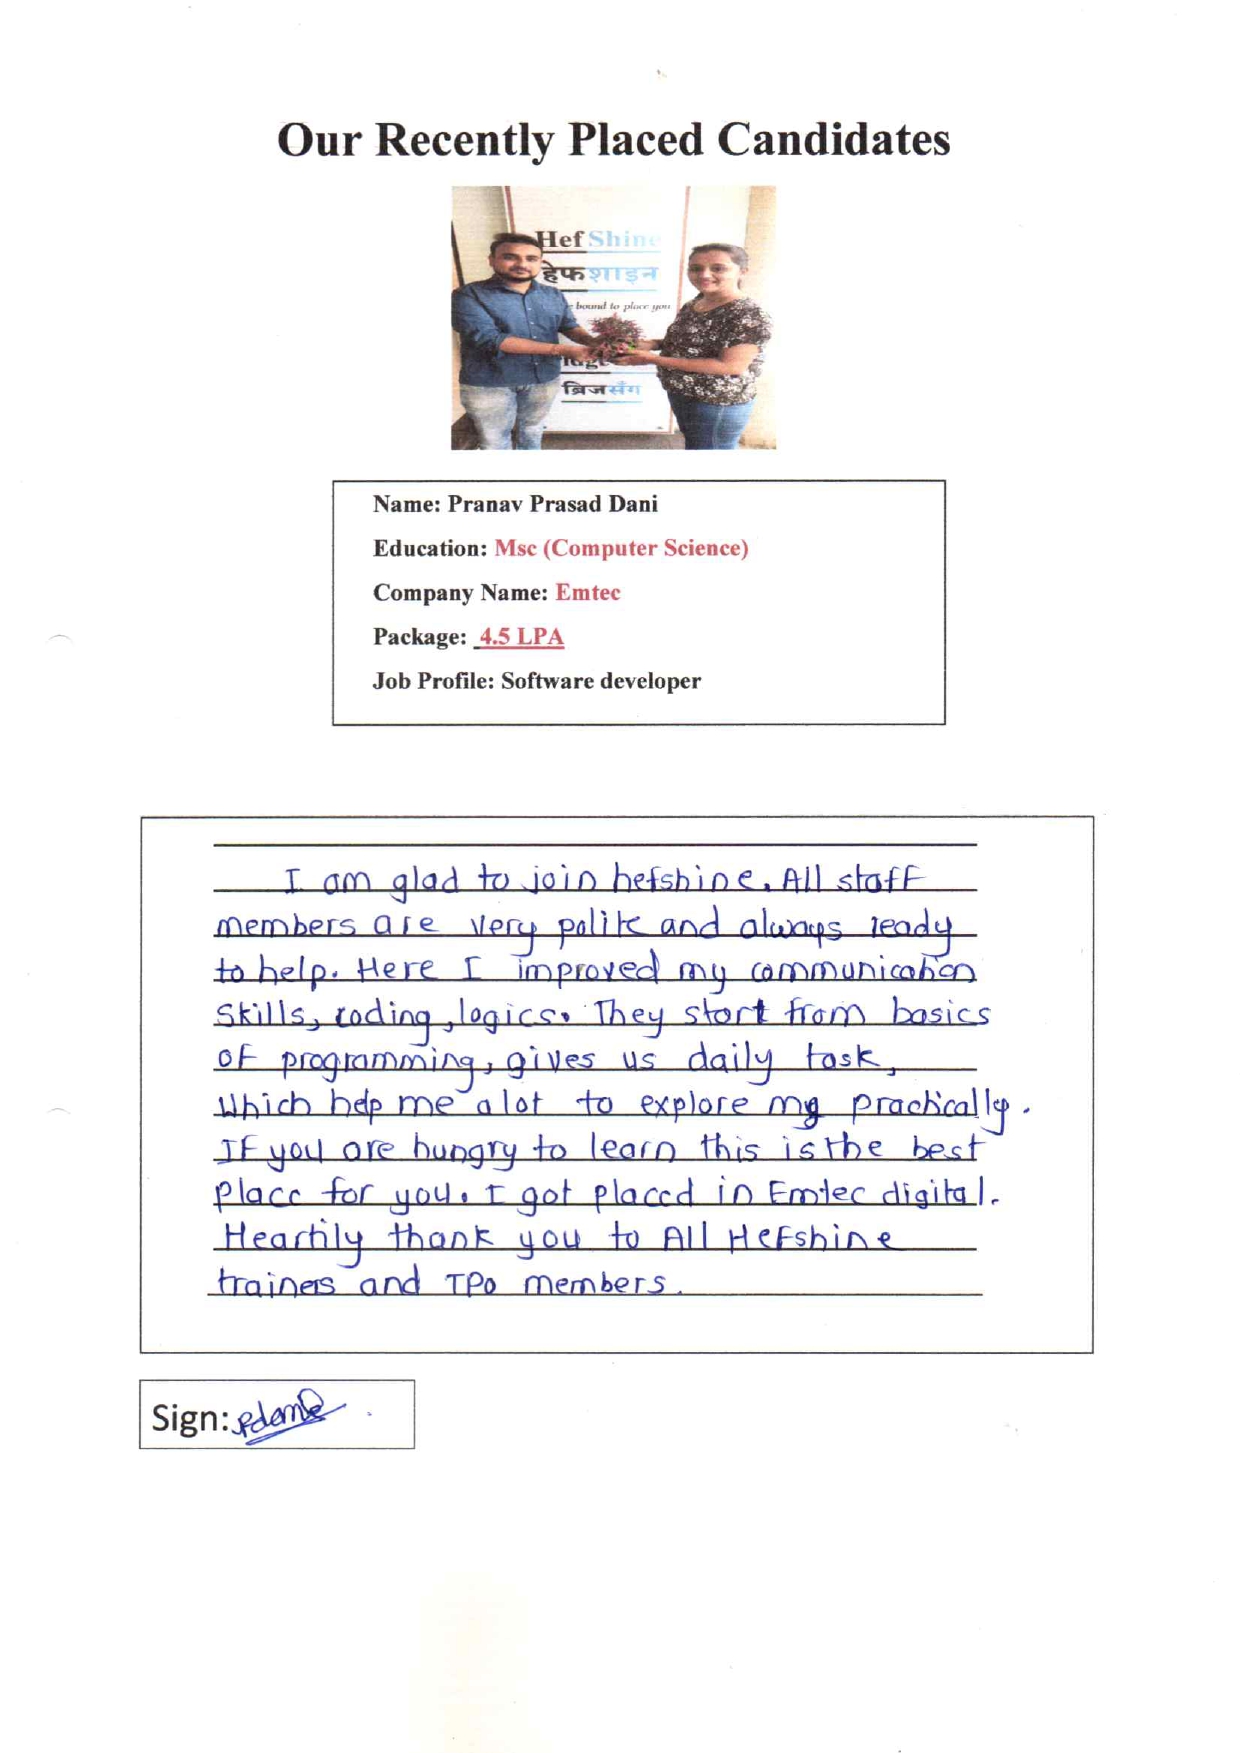 Our Recently Placed Candidates
HefShine
हेफशाइन
bound to place you
ब्रिजसँग
Name: Pranav Prasad Dani
Education: Msc (Computer Science)
Company Name: Emtec
Package: 4.5 LPA
Job Profile: Software developer
I am glad to join hefshine. All staff
members are very polite and always ready
to help. Here I improved my communication
skills, coding, logics. They start from basics
of programming, gives us daily task,
which help me alot to explore my practically.
If you are hungry to learn this is the best
place for you. I got placed in Emtec digital.
Heartily thank you to All Hefshine
trainers and TPO members.
Sign: